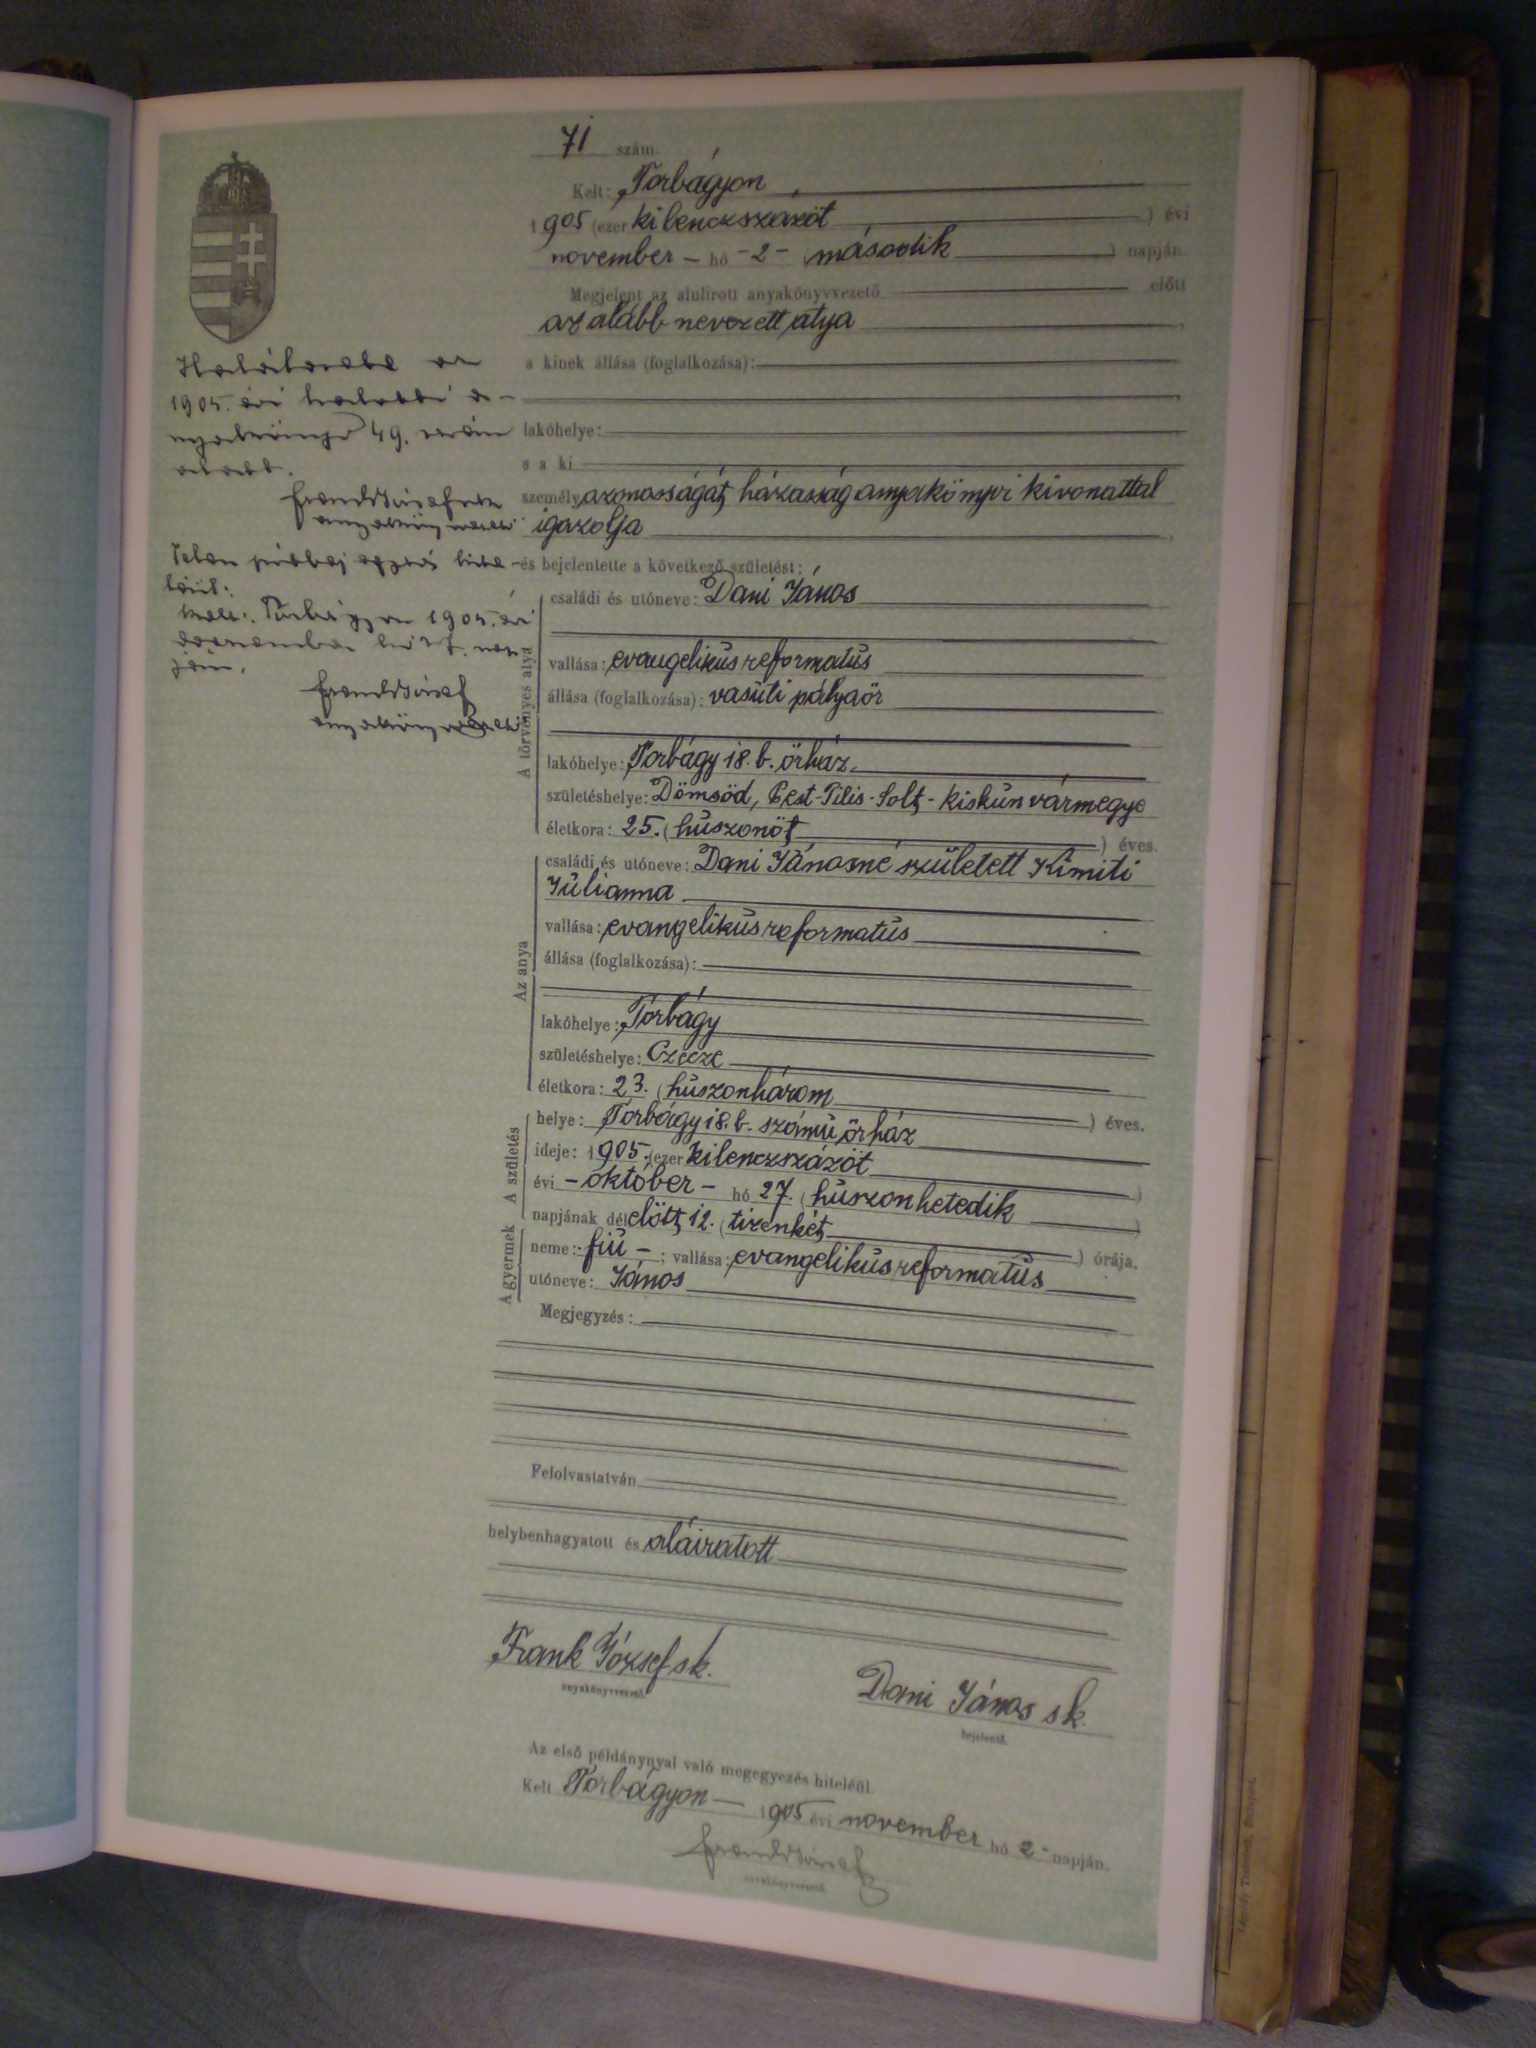 71 szám.
Kelt: Torbágyon,
1905 (ezer kilenczszázöt) évi
november – hó – 2 – (második) napján.
Megjelent az alulirott anyakönyvvezető előtt
az alább nevezett atya
a kinek állása (foglalkozása):
lakóhelye:
s a ki
személyazonosságát házasság anyakönyvi kivonattal
igazolja
és bejelentette a következő születést:
A törvényes atya
családi és utóneve: Dani János
vallása: evangelikus reformatus
állása (foglalkozása): vasúti pályaőr
lakóhelye: Torbágy 18. b. őrház.
születéshelye: Dömsöd, Pest-Pilis-Solt-Kiskun vármegye
életkora: 25. (huszonöt) éves.
Az anya
családi és utóneve: Dani Jánosné született Kimiti
Julianna
vallása: evangelikus reformatus
állása (foglalkozása):
lakóhelye: Torbágy
születéshelye: Czecze
életkora: 23. (huszonhárom) éves.
A születés
helye: Torbágy 18. b. számú őrház
ideje: 1905. (ezer kilenczszázöt)
évi – október – hó 27. (huszonhetedik)
napjának délelőtt 12. (tizenkét) órája.
A gyermek
neme: fiú – ; vallása: evangelikus reformatus
utóneve: János
Megjegyzés:
Felolvastatván
helybenhagyatott és aláiratott
Frank József sk.
anyakönyvvezető.
Dani János sk.
bejelentő.
Az első példánynyal való megegyezés hiteléül.
Kelt Torbágyon – 1905 évi november hó 2 - napján.
Frank József
anyakönyvvezető.
Halálozása az
1905. évi halotti a-
nyakönyv 49. szám
alatt.
Frank József
anyakönyvvezető
hite-
léül:
Kelt: Torbágyon 1905. évi
hó 27. nap
ján.
Frank József
anyakönyvvezető